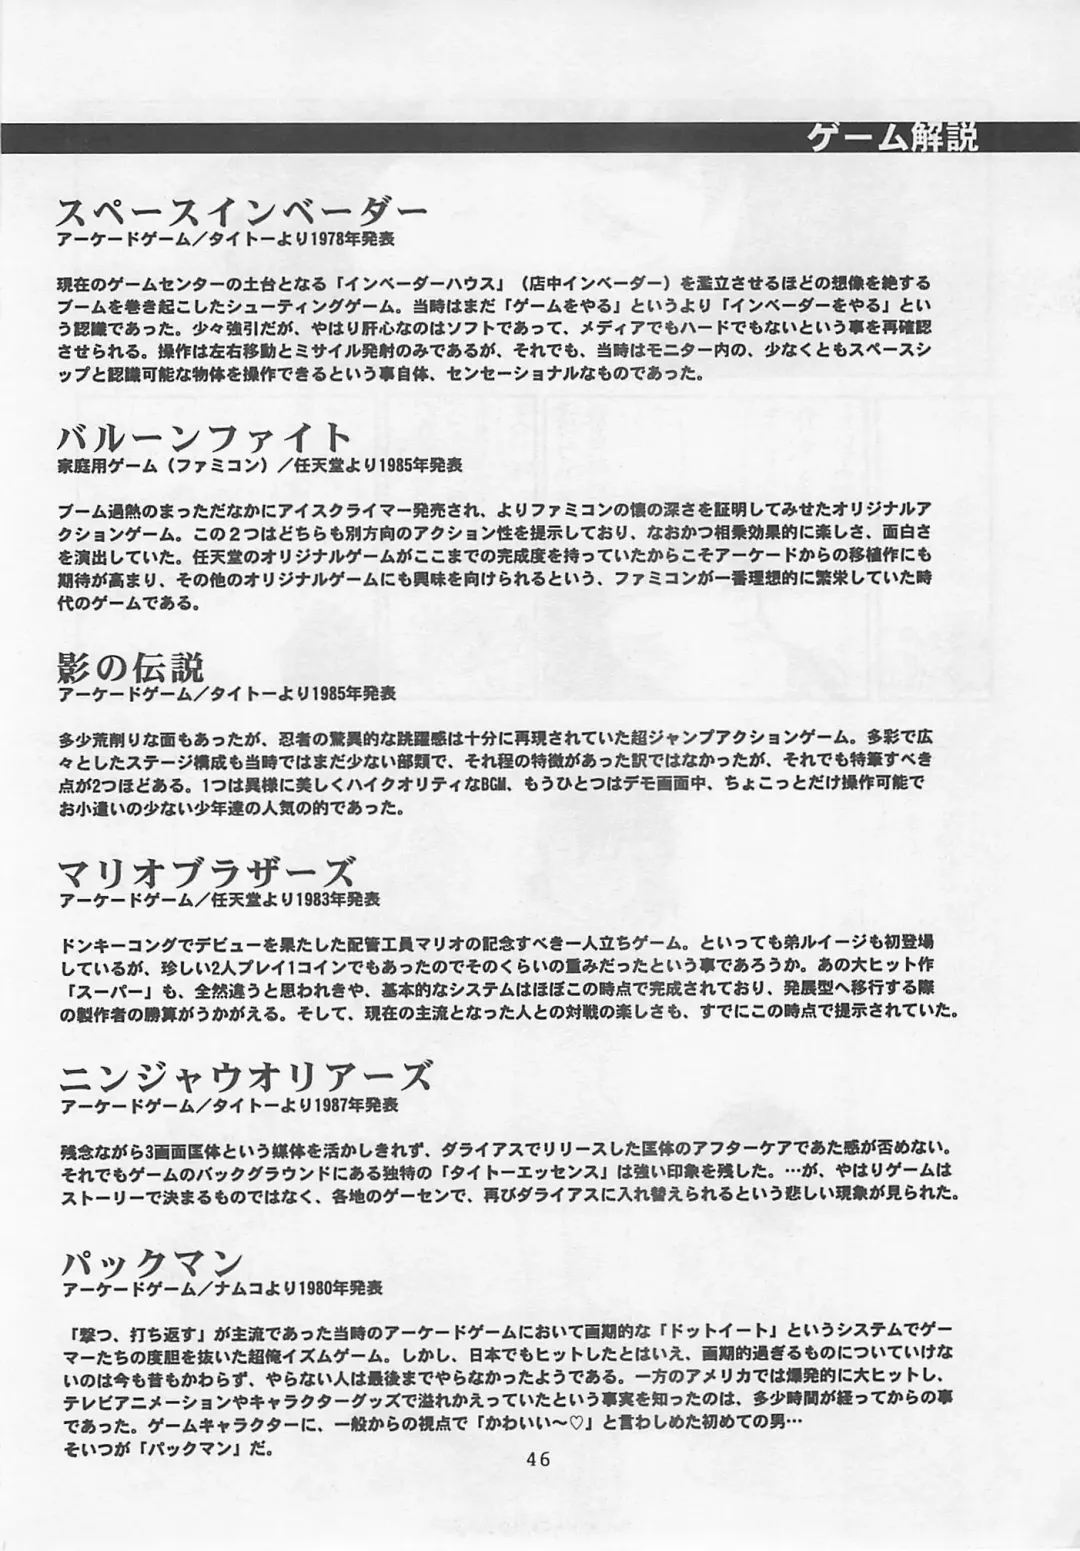 ゲーム解説
スペースインベーダー
アーケードゲーム／タイトーより1978年発表
現在のゲームセンターの土台となる「インベーダーハウス」（店中インベーダー）を濫立させるほどの想像を絶する
ブームを巻き起こしたシューティングゲーム。当時はまだ「ゲームをやる」というより「インベーダーをやる」とい
う認識であった。少々強引だが、やはり肝心なのはソフトであって、メディアでもハードでもないという事を再確認
させられる。操作は左右移動とミサイル発射のみであるが、それでも、当時はモニター内の、少なくともスペースシ
ップと認識可能な物体を操作できるという事自体、センセーショナルなものであった。
バルーンファイト
家庭用ゲーム（ファミコン）／任天堂より1985年発表
ブーム過熱のまっただなかにアイスクライマー発売され、よりファミコンの懐の深さを証明してみせたオリジナルア
クションゲーム。この２つはどちらも別方向のアクション性を提示しており、なおかつ相乗効果的に楽しさ、面白さ
を演出していた。任天堂のオリジナルゲームがここまでの完成度を持っていたからこそアーケードからの移植作にも
期待が高まり、その他のオリジナルゲームにも興味を向けられるという、ファミコンが一番理想的に繁栄していた時
代のゲームである。
影の伝説
アーケードゲーム／タイトーより1985年発表
多少荒削りな面もあったが、忍者の驚異的な跳躍感は十分に再現されていた超ジャンプアクションゲーム。多彩で広
々としたステージ構成も当時ではまだ少ない部類で、それ程の特徴があった訳ではなかったが、それでも特筆すべき
点が2つほどある。1つは異様に美しくハイクオリティなBGM、もうひとつはデモ画面中、ちょこっとだけ操作可能で
お小遣いの少ない少年達の人気の的であった。
マリオブラザーズ
アーケードゲーム／任天堂より1983年発表
ドンキーコングでデビューを果たした配管工員マリオの記念すべき一人立ちゲーム。といっても弟ルイージも初登場
しているが、珍しい2人プレイ1コインでもあったのでそのくらいの重みだったという事であろうか。あの大ヒット作
「スーパー」も、全然違うと思われきや、基本的なシステムはほぼこの時点で完成されており、発展型へ移行する際
の製作者の勝算がうかがえる。そして、現在の主流となった人との対戦の楽しさも、すでにこの時点で提示されていた。
ニンジャウオリアーズ
アーケードゲーム／タイトーより1987年発表
残念ながら3画面匡体という媒体を活かしきれず、ダライアスでリリースした匡体のアフターケアであた感が否めない。
それでもゲームのバックグラウンドにある独特の「タイトーエッセンス」は強い印象を残した。…が、やはりゲームは
ストーリーで決まるものではなく、各地のゲーセンで、再びダライアスに入れ替えられるという悲しい現象が見られた。
パックマン
アーケードゲーム／ナムコより1980年発表
「撃つ、打ち返す」が主流であった当時のアーケードゲームにおいて画期的な「ドットイート」というシステムでゲー
マーたちの度胆を抜いた超俺イズムゲーム。しかし、日本でもヒットしたとはいえ、画期的過ぎるものについていけな
いのは今も昔もかわらず、やらない人は最後までやらなかったようである。一方のアメリカでは爆発的に大ヒットし、
テレビアニメーションやキャラクターグッズで溢れかえっていたという事実を知ったのは、多少時間が経ってからの事
であった。ゲームキャラクターに、一般からの視点で「かわいい〜♡」と言わしめた初めての男…
そいつが「パックマン」だ。
46